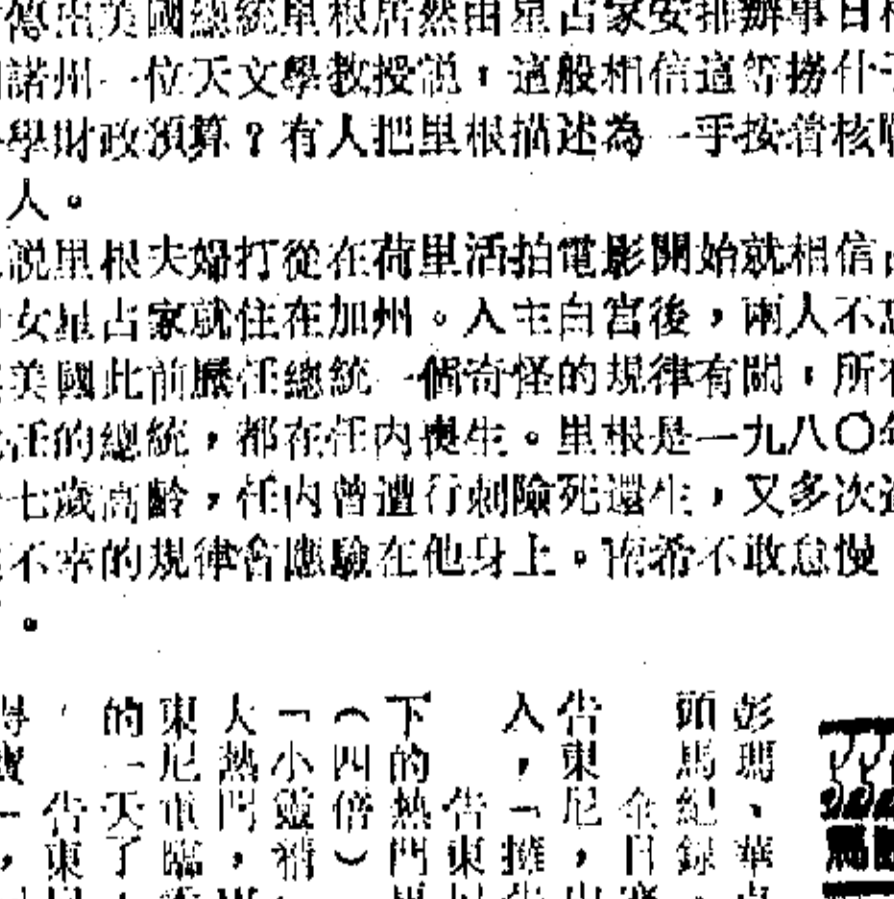 傳出美國總統里根居然由星占家安排辦事日
諾州一位天文學教授說，這般相信這等撈什
學財政預算？有人把里根描述為一手按着核
人。
說里根夫婦打從在荷里活拍電影開始就相信
女星占家就住在加州。入主白宮後，兩人不
美國此前歷任總統一個奇怪的規律有關，所
任的總統，都在任內喪生。里根是一九八〇年
七歲高齡，任內曾遭行刺險死還生，又多次
不幸的規律會應驗在他身上。南希不敢怠慢
。
彭瑪、華
頭馬紀錄，
全日賽
告東尼，
入，「擁
告東
下的熱門
（四倍）
「小靈精
大熱門，
東尼重臨
的一天了，
告東